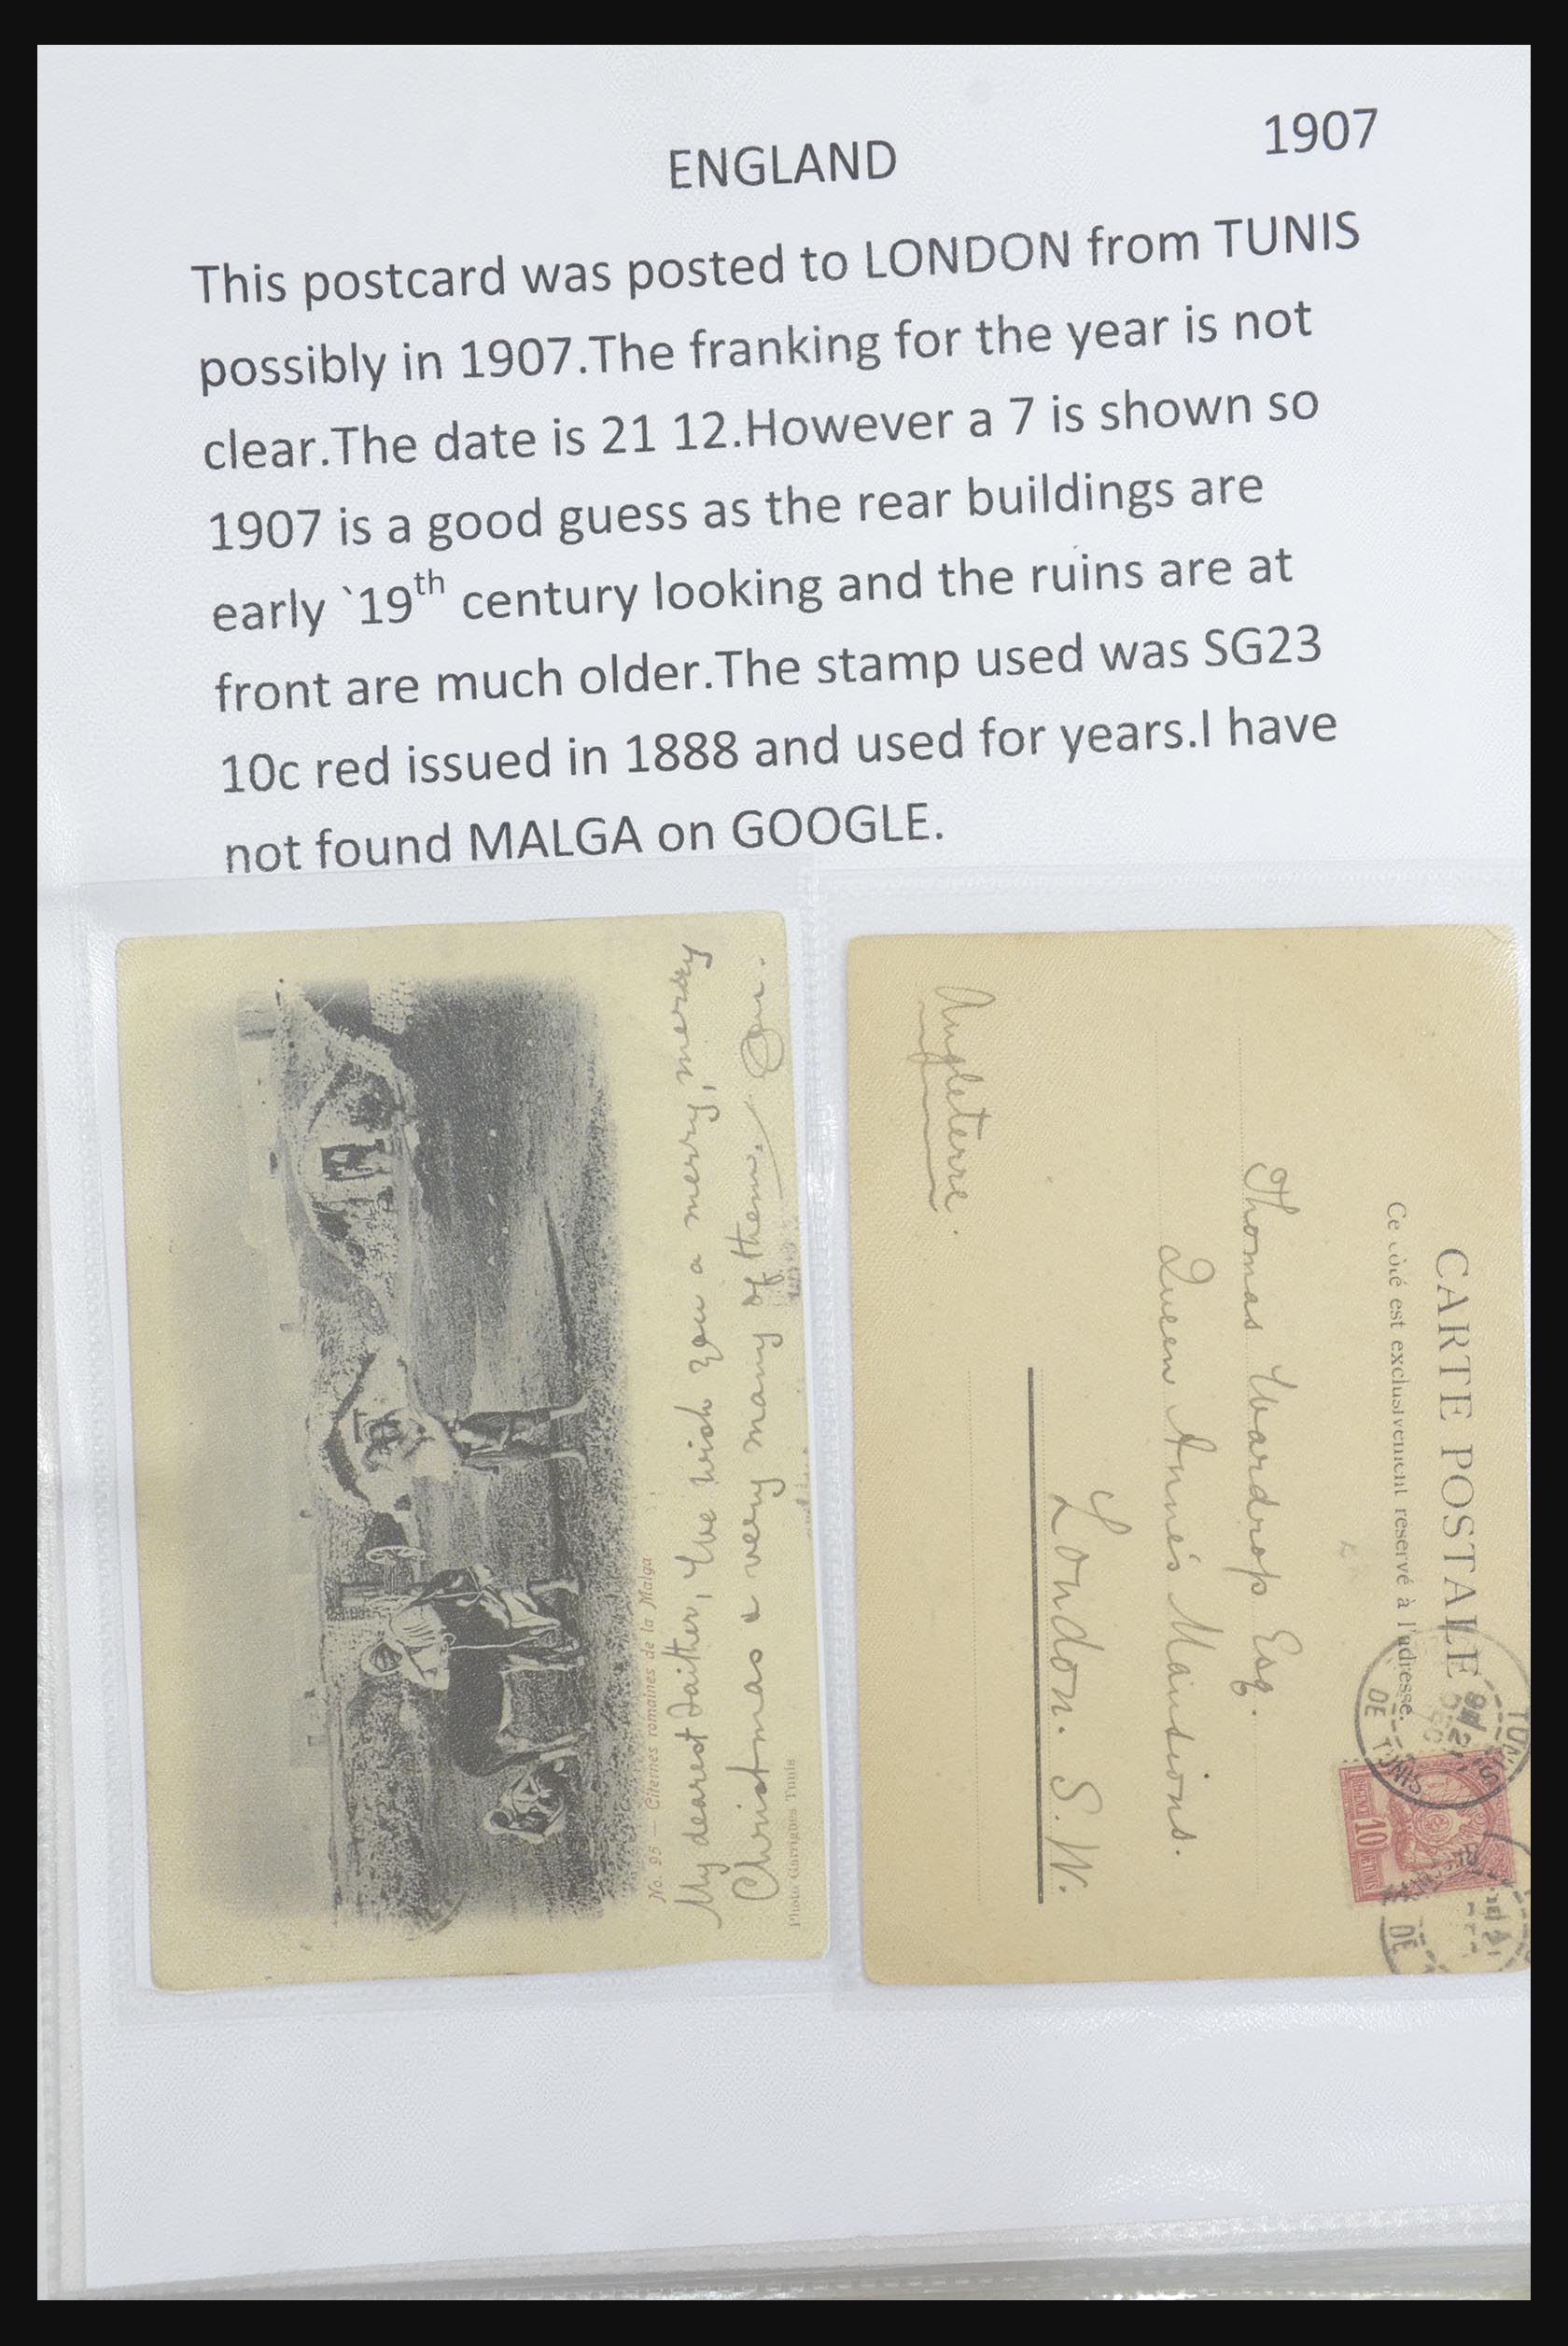 ENGLAND 1907
This postcard was posted to LONDON from TUNIS
possibly in 1907.The franking for the year is not
clear.The date is 21 12.However a 7 is shown so
1907 is a good guess as the rear buildings are
early `19th century looking and the ruins are at
front are much older.The stamp used was SG23
10c red issued in 1888 and used for years.I have
not found MALGA on GOOGLE.
No. 95 — Citernes romaines de la Malga
My dearest Faither, We wish you a merry, merry
Christmas & very many of them.
Photo Garrigues Tunis
CARTE POSTALE
Ce côté est exclusivement réservé à l'adresse.
Thomas Wardrop Esq.
Queen Anne's Mansions.
London. S.W.
Angleterre.
TUNIS
DE TUNIS
10
DE